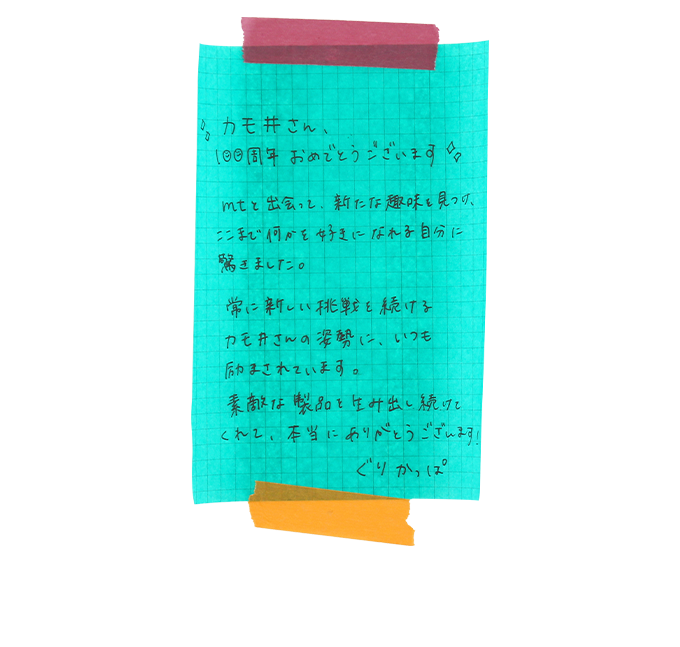 カモ井さん、
100周年 おめでとうございます
mtと出会って、新たな趣味を見つけ、
ここまで何かを好きになれる自分に
驚きました。
常に新しい挑戦を続ける
カモ井さんの姿勢に、いつも
励まされています。
素敵な製品を生み出し続けて
くれて、本当にありがとうございます!
ぐりかっぱ